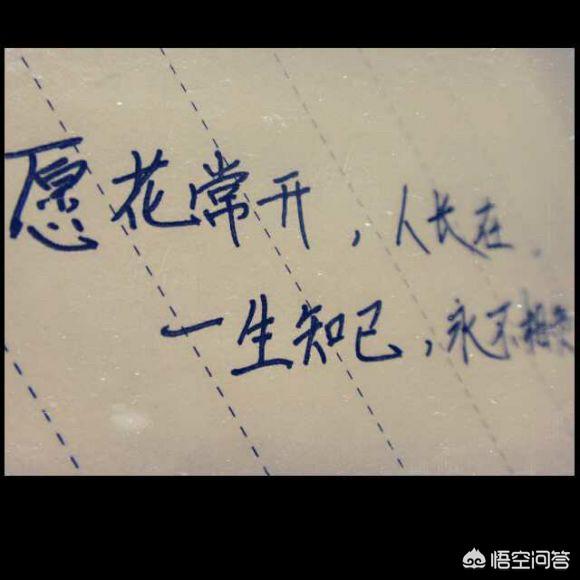 愿花常开，人长在，
一生知己，永不相负
悟空问答